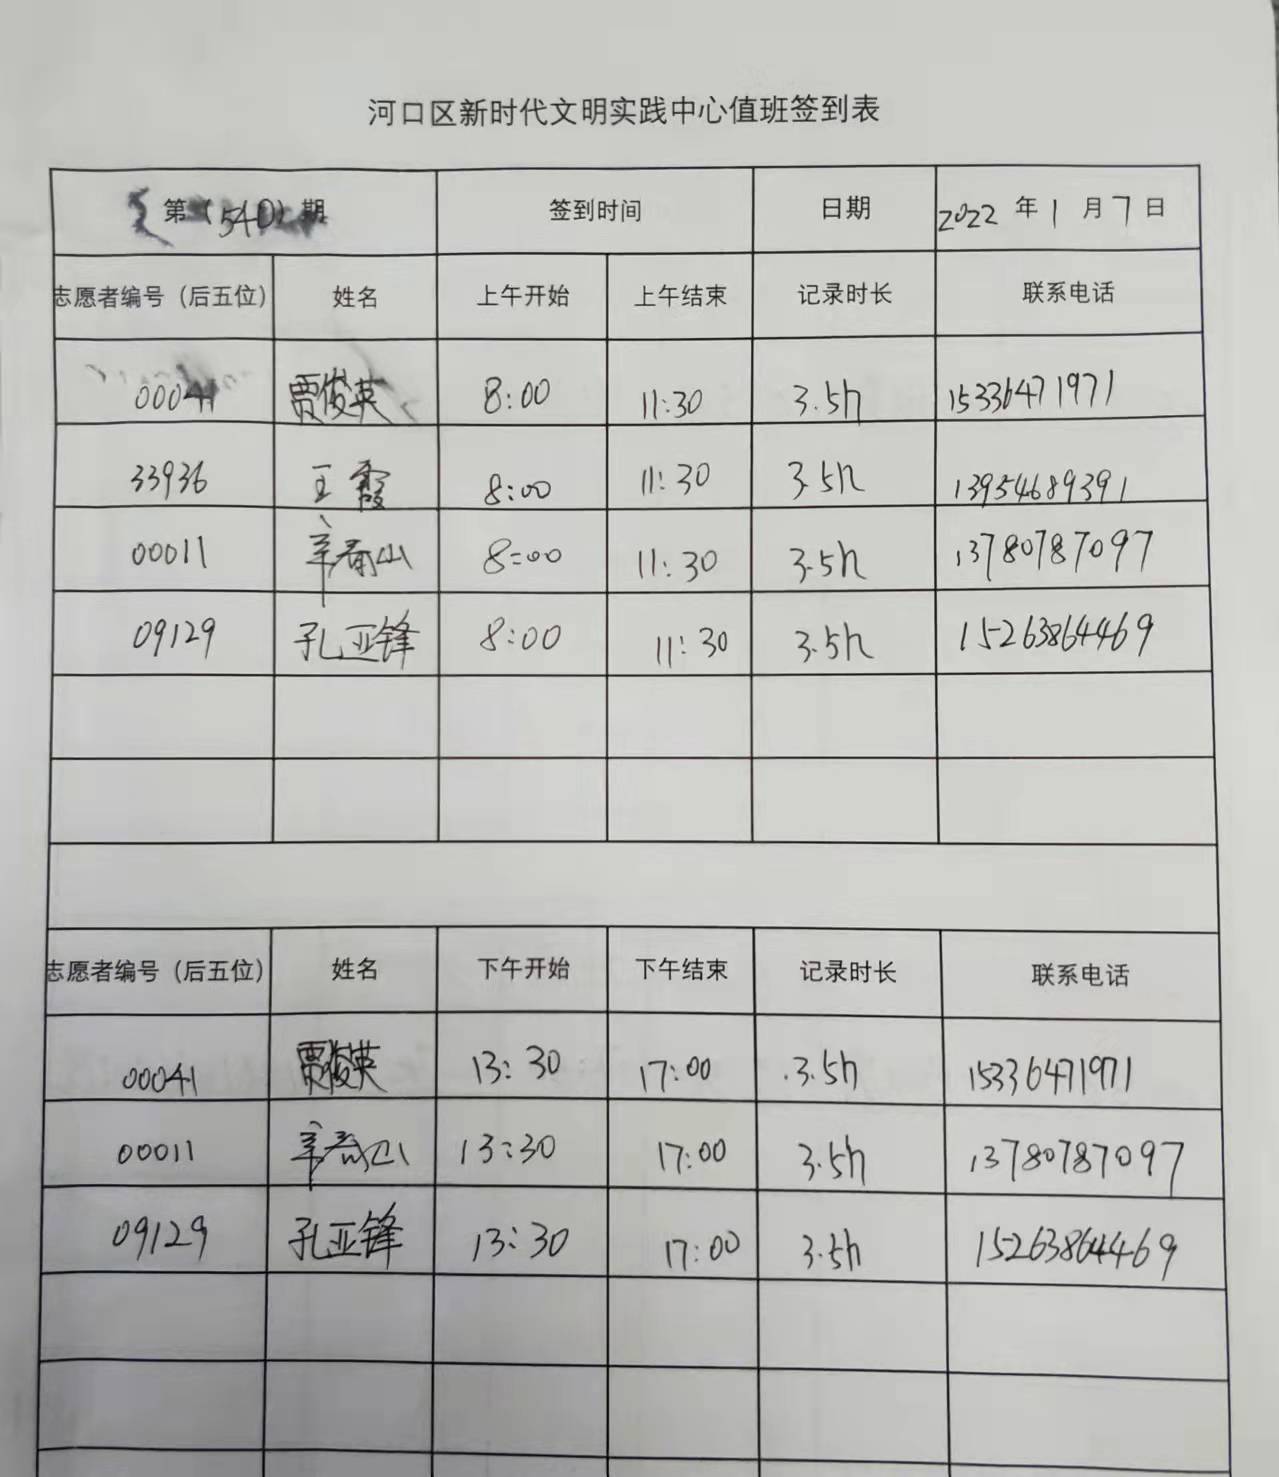 河口区新时代文明实践中心值班签到表
第（540）期 签到时间 日期 2022 年 1 月 7 日
志愿者编号（后五位） 姓名 上午开始 上午结束 记录时长 联系电话
00041 贾俊英 8:00 11:30 3.5h 15336471971
33936 王霞 8:00 11:30 3.5h 13954689391
00011 辛春山 8:00 11:30 3.5h 13780787097
09129 孔亚锋 8:00 11:30 3.5h 15263864469
志愿者编号（后五位） 姓名 下午开始 下午结束 记录时长 联系电话
00041 贾俊英 13:30 17:00 3.5h 15336471971
00011 辛春山 13:30 17:00 3.5h 13780787097
09129 孔亚锋 13:30 17:00 3.5h 15263864469